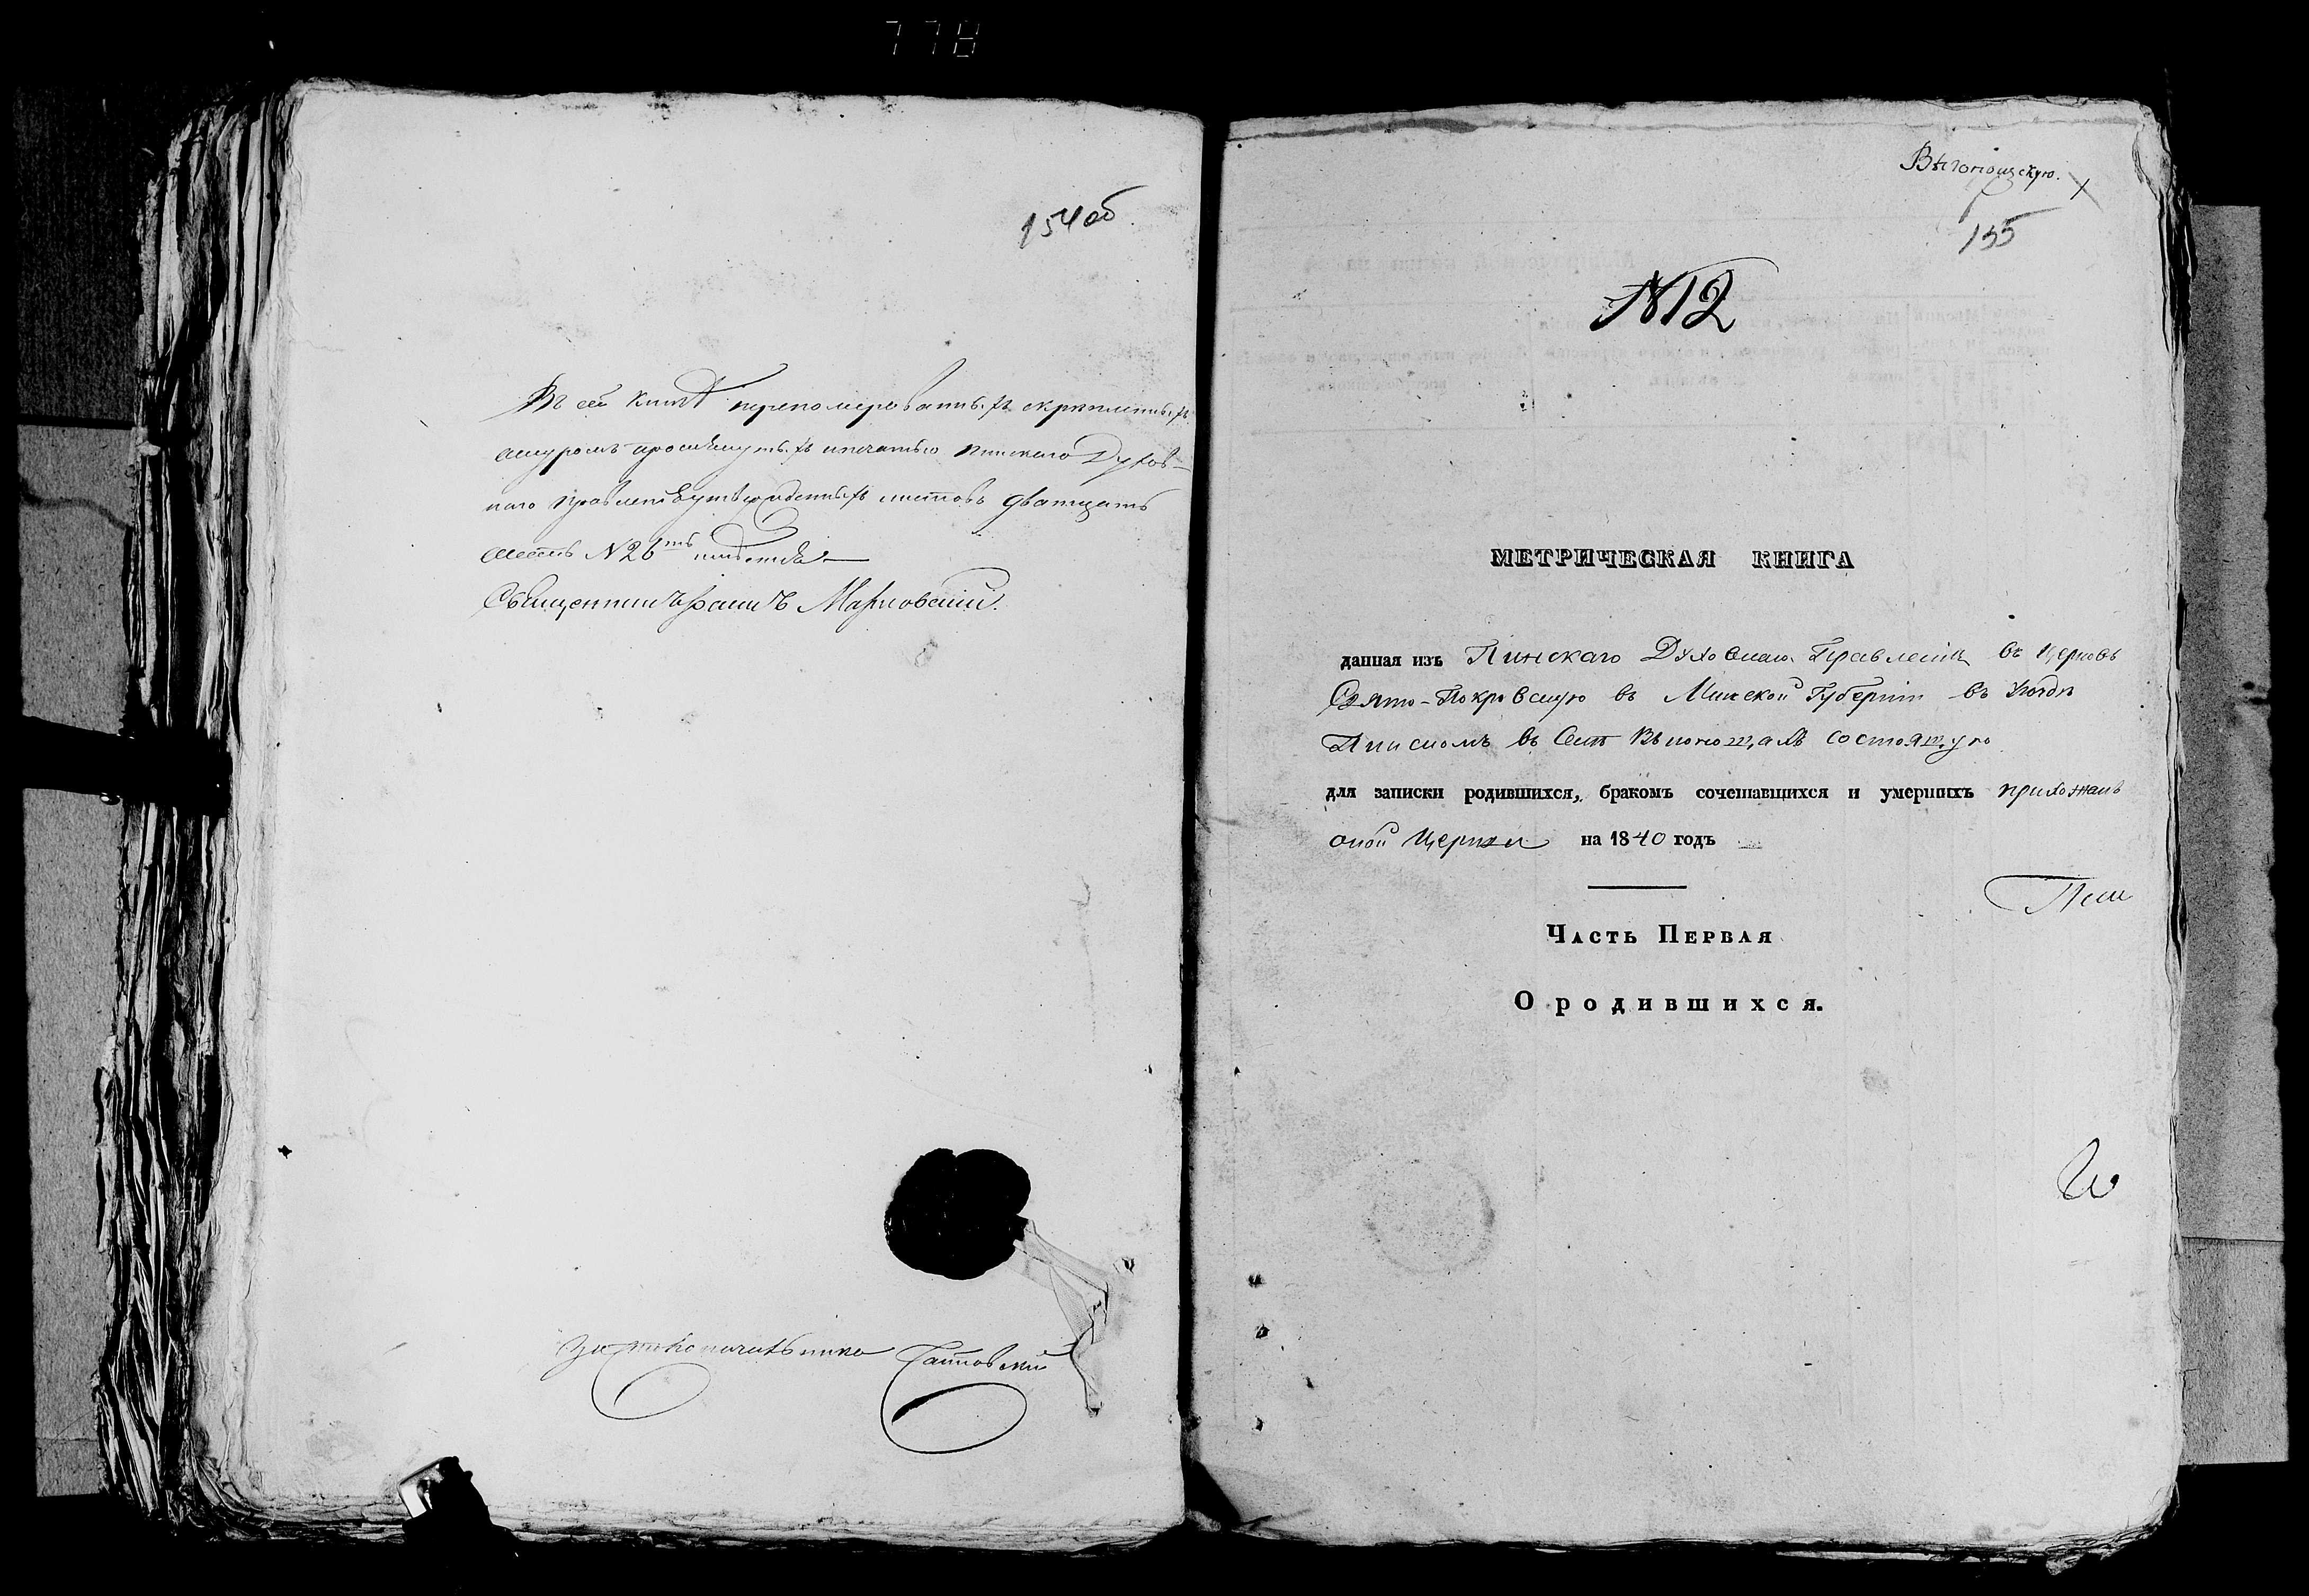 778
154 об
Въ сей книгѣ перенумерованныхъ скрѣпленныхъ
шнуромъ прошнутыхъ и печатью Пинскаго Духов-
наго Правленія утвержденныхъ листовъ дватцать
шесть №26
Священникъ Марковскій.
155
№12
МЕТРИЧЕСКАЯ КНИГА
данная изъ Пинскаго Духовнаго Правленія въ Церковь
Свято-Покровскую въ Минской Губерніи въ Уѣздѣ
Пинскомъ въ Селѣ состоящую
для записки родившихся, бракомъ сочетавшихся и умершихъ прихожанъ
оной Церкви на 1840 годъ
Часть Первая
О родившихся.